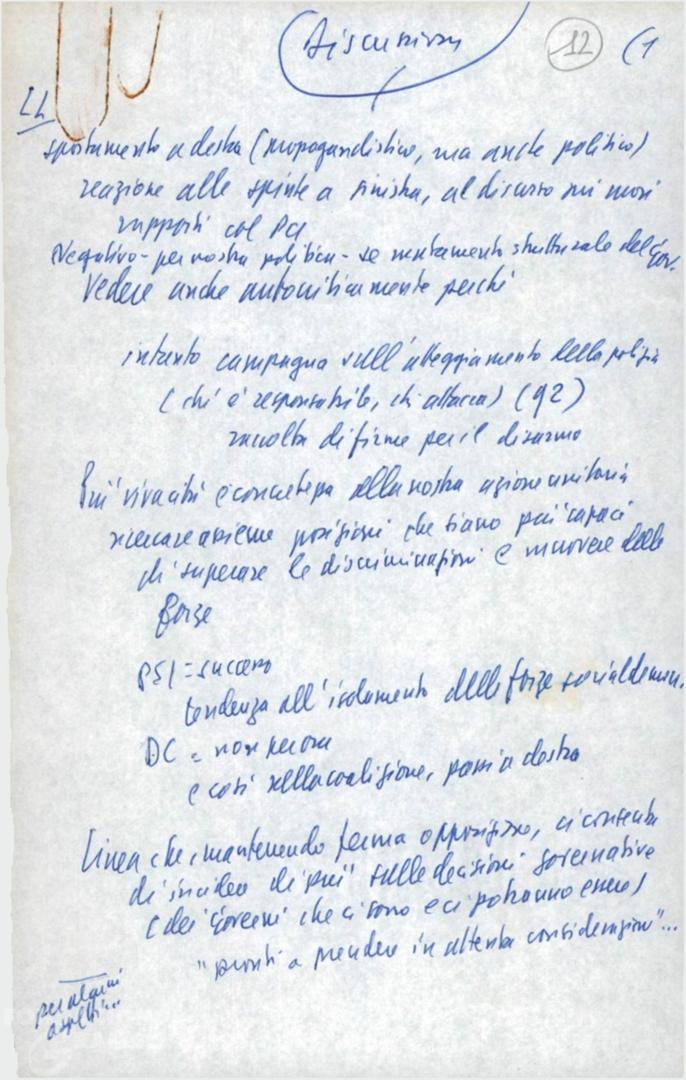 Discussione
12 (1
LL
spostamento a destra (propagandistico, ma anche politico)
reazione alle spinte a sinistra, al discorso sui nuovi
rapporti col PCI
Negativo - per nostra politica - se mutamento strutturale del Gov.
Vedere anche autocriticamente perché
intanto campagna sull'atteggiamento della polizia
(chi è responsabile, chi attacca) (92)
raccolta di firme per il disarmo
Più vivacità e concretezza alla nostra azione unitaria
ricercare assieme posizioni che siano più capaci
di superare le discriminazioni e muovere delle
forze
PSI = successo
tendenza all'isolamento delle forze socialdemocr.
DC = non
e così nella coalizione, passi a destra
Linea che, mantenendo ferma opposizione, ci consenta
di incidere di più sulle decisioni governative
(dei Governi che ci sono e ci potranno essere)
"pronti a prendere in attenta considerazione"...
per alcuni
aspetti...